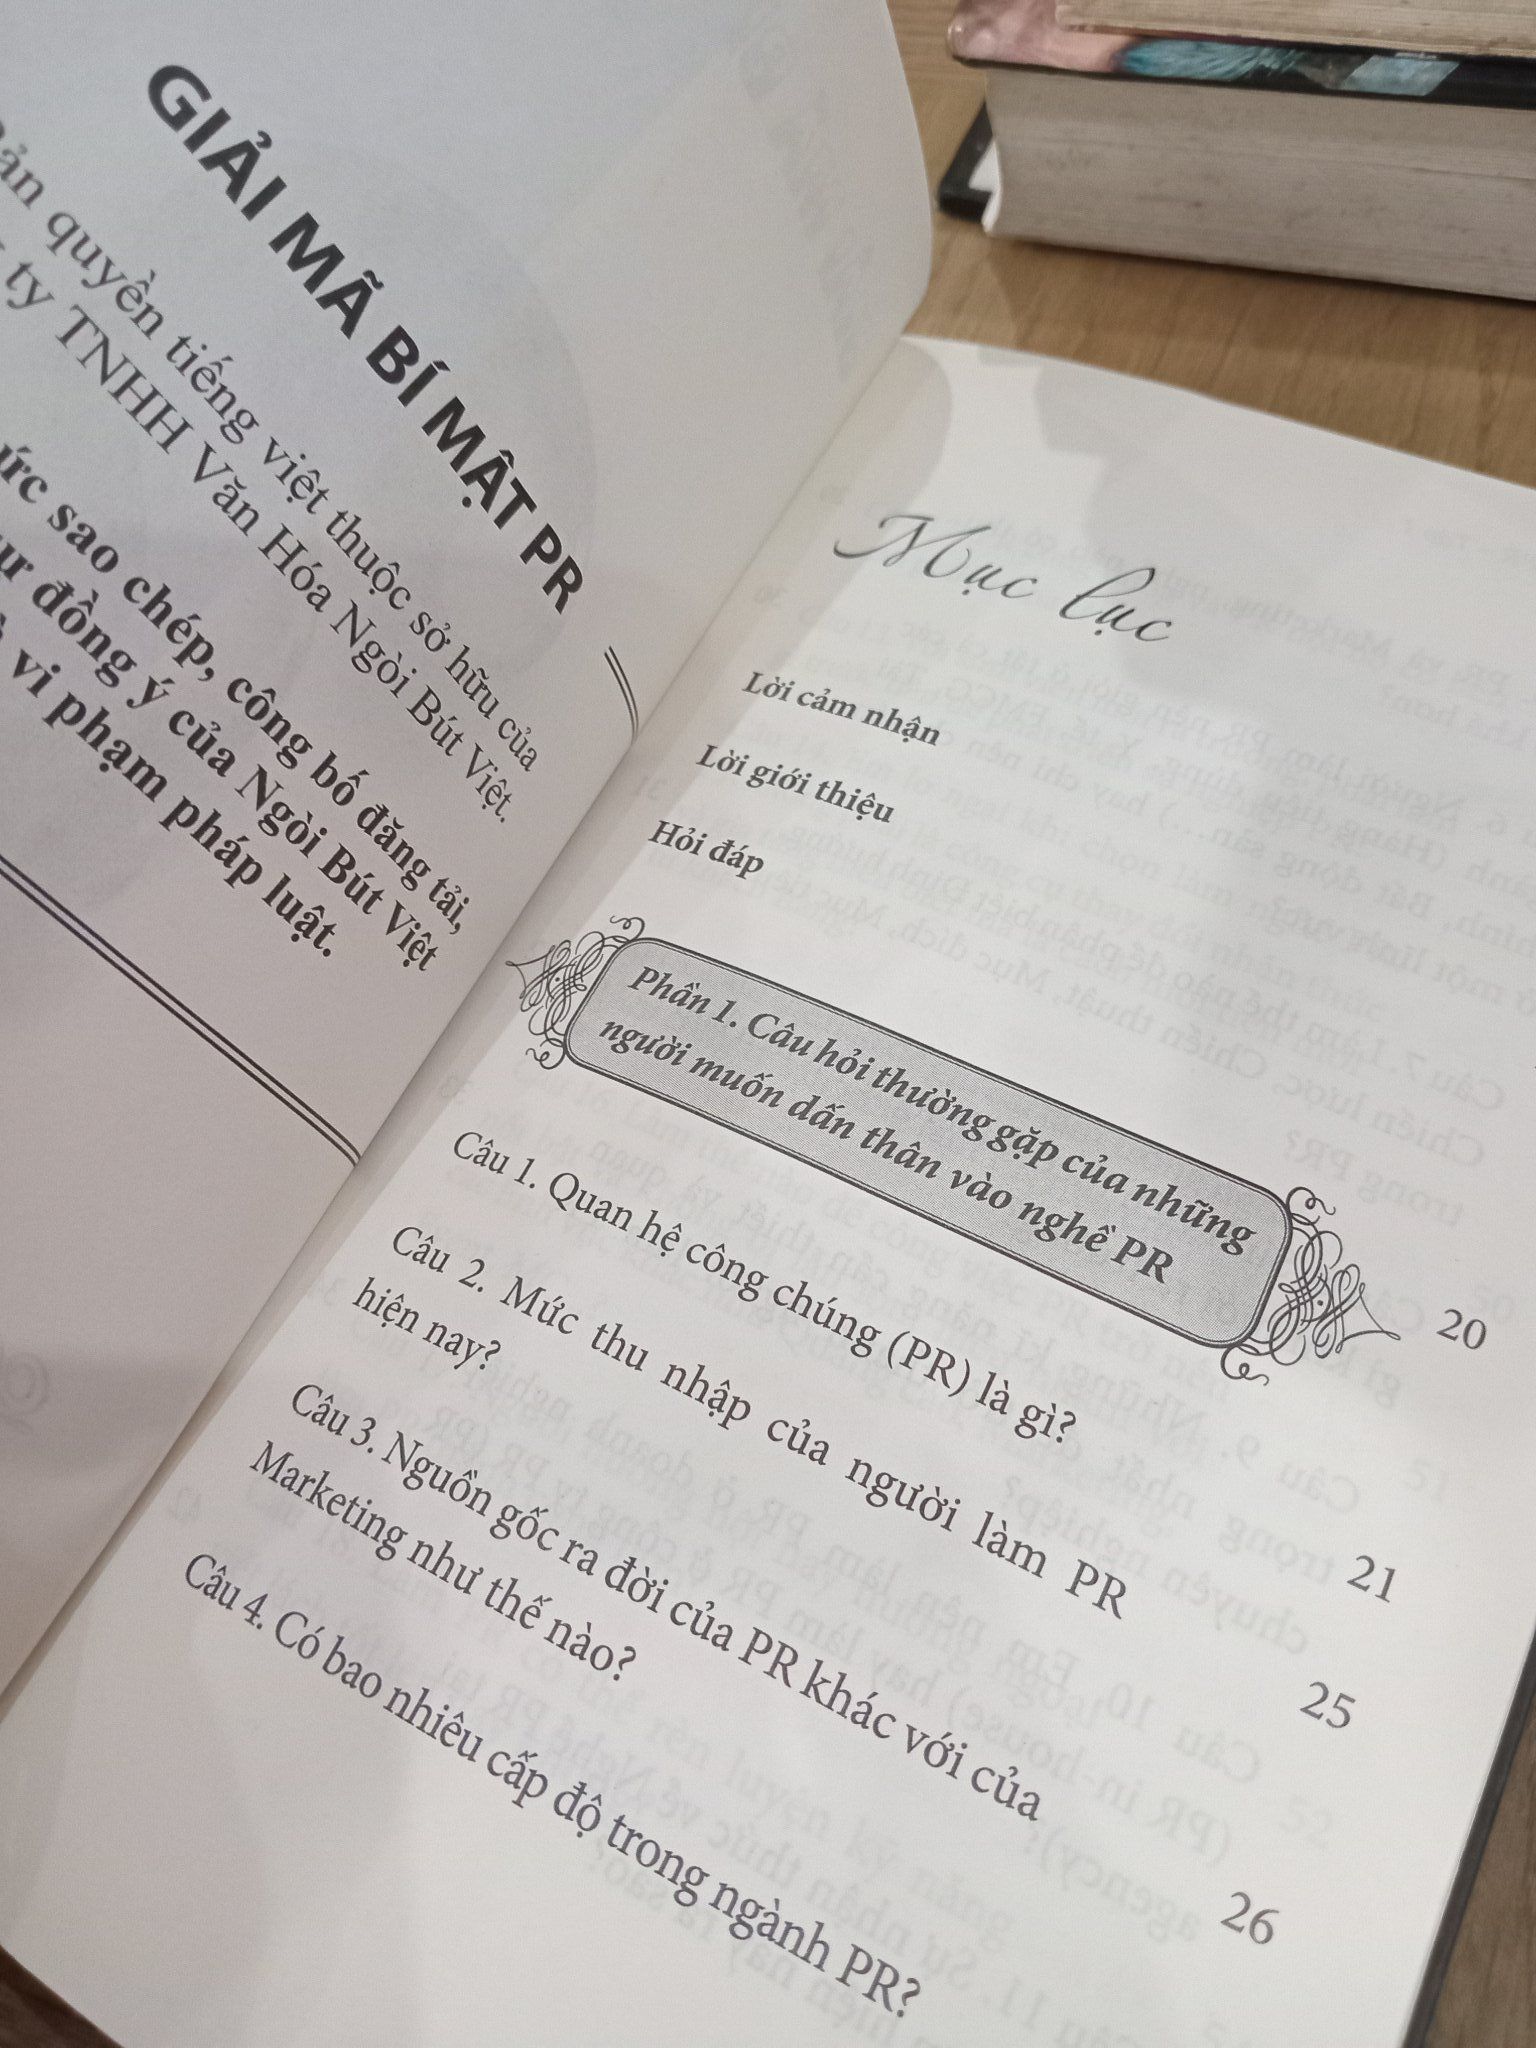 GIẢI MÃ BÍ MẬT PR
quyền tiếng việt thuộc sở hữu của
ty TNHH Văn Hóa Ngòi Bút Việt.
sao chép, công bố đăng tải,
đồng ý của Ngòi Bút Việt
vi phạm pháp luật.
Mục lục
Lời cảm nhận
Lời giới thiệu
Hỏi đáp
Phần 1. Câu hỏi thường gặp của những
người muốn dấn thân vào nghề PR
Câu 1. Quan hệ công chúng (PR) là gì? 20
Câu 2. Mức thu nhập của người làm PR
hiện nay? 21
Câu 3. Nguồn gốc ra đời của PR khác với của
Marketing như thế nào? 25
Câu 4. Có bao nhiêu cấp độ trong ngành PR? 26